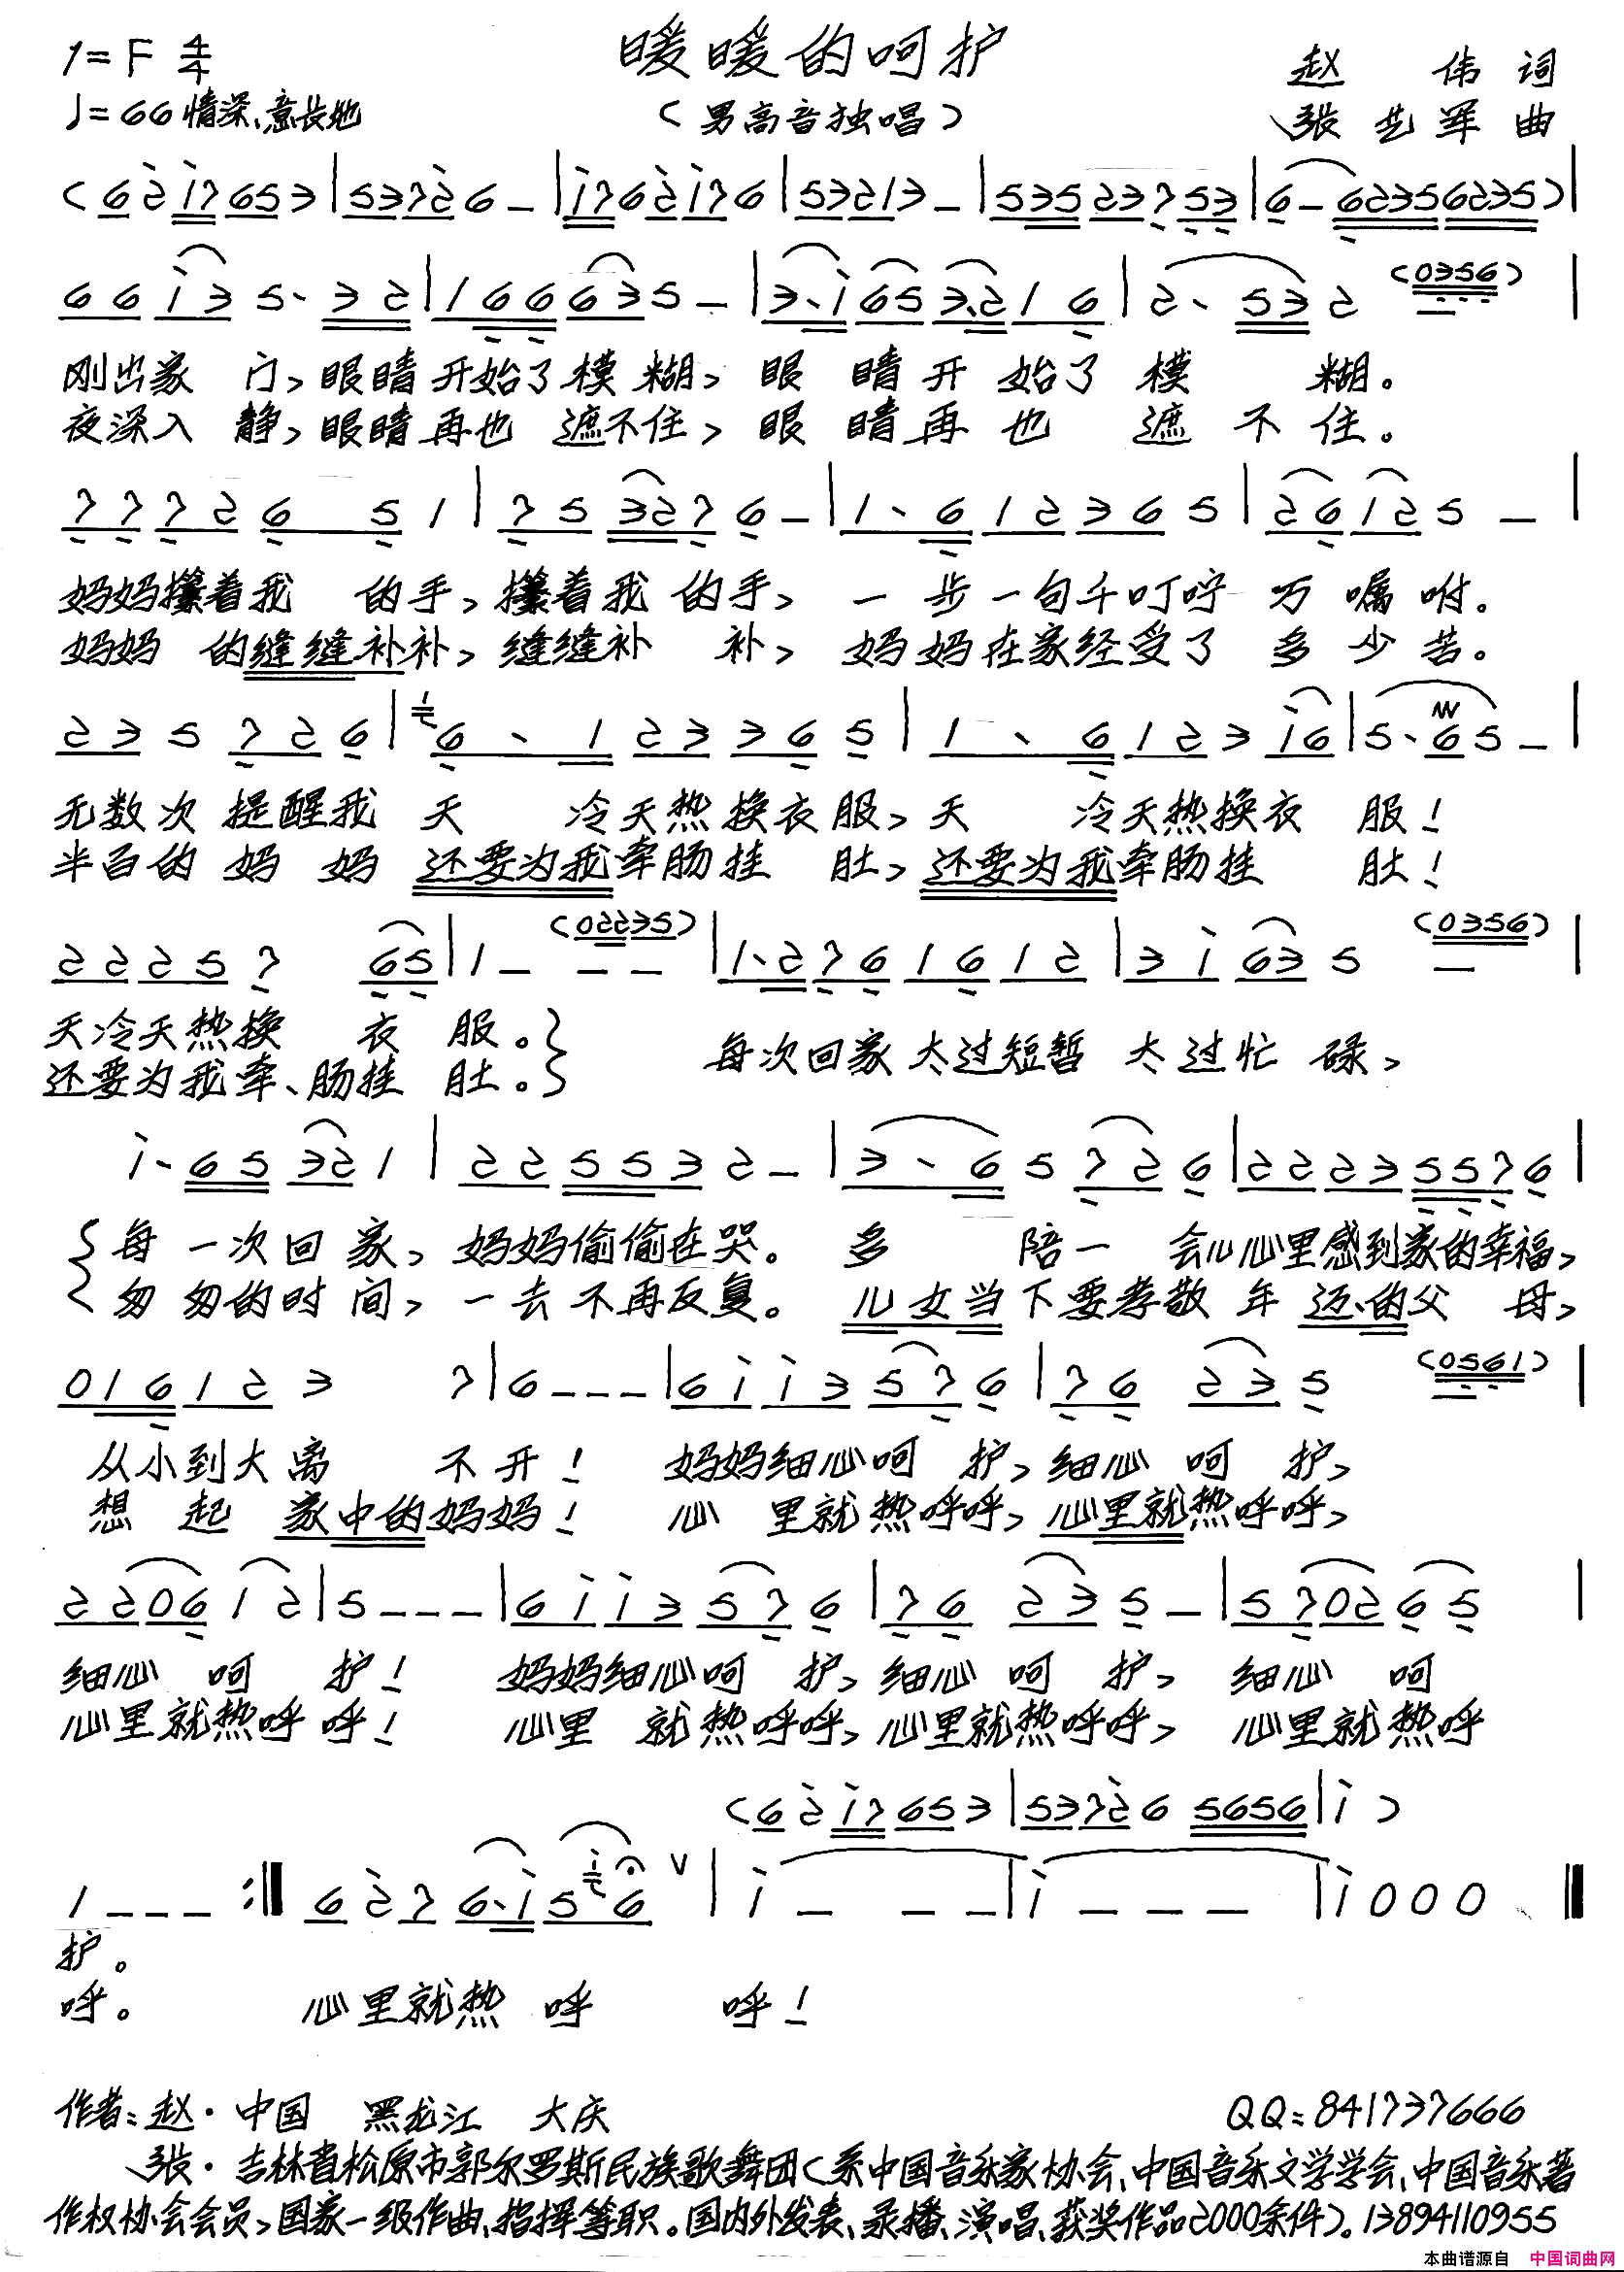 暖暖的呵护
1=F 4/4
赵 伟 词
♩=66 情深、意长地
(男高音独唱)
张艺军 曲
(6 2̇ 1̇7 65 3 | 53 72̇ 6 – | 1̇7 6 2̇ 1̇7 6 | 53 21 3 – | 535 23 7 53 | 6 – 6235 6235) |
66 1̇3 5· 32 | 1 66 63 5 – | 3·1̇ 65 3·2 1 6 | 2· 53 2 (0356) |
刚出家 门,眼睛开始了模 糊,眼 睛开 始了 模 糊。
夜深入 静,眼睛再也 遮不住,眼 睛再 也 遮 不 住。
77 72 6 5 1 | 75 32 7 6 – | 1·6 12 36 5 | 26 12 5 – |
妈妈攥着我 的手,攥着我 的手, 一 步一句千叮咛 万嘱咐。
妈妈 的缝缝补补,缝缝补 补, 妈妈在家经受了 多少苦。
23 5 72 6 | 6· 1 23 36 5 | 1· 6 12 3 1̇6 | 5· 65 – |
无数次 提醒我 天 冷天热换衣服,天 冷天热换衣 服!
半百的 妈 妈 还要为我牵肠挂 肚,还要为我牵肠挂 肚!
22 25 7 65 | 1 – (02235) – – | 1·2 76 16 12 | 31̇ 63 5 (0356) – |
天冷天热换 衣 服。
每次回家太过短暂 太过忙 碌,
还要为我牵、肠挂 肚。
1̇· 65 32 1 | 22 55 3 2 – | 3· 6 5 72 6 | 22 23 557 6 |
每 一次回 家,妈妈偷偷在哭。 多 陪一 会儿心里感到家的幸福,
匆 匆的时 间,一去不再反复。 儿女当下要孝敬 年 迈、的父 母,
01 6 12 3 7 | 6 – – – | 61̇ 1̇3 57 6 | 76 23 5 (0561) – |
从小到大离 不开! 妈妈细心呵 护,细心 呵 护,
想 起 家中的妈妈! 心 里就热呼呼,心里就热呼呼,
22 06 1 2 | 5 – – – | 61̇ 1̇3 57 6 | 76 23 5 – | 57 02 6 5 |
细心 呵 护! 妈妈细心呵 护,细心 呵 护, 细心 呵
心里就热呼 呼! 心里 就热呼呼,心里就热呼呼, 心里就热呼
(6 2̇ 1̇7 65 3 | 53 72̇ 6 5656 | 1̇ )
1 – – – :‖ 6 2̇ 7 6·1̇ 5 6 ∨ | 1̇ – – – | 1̇ – – – | 1̇ 0 0 0 ‖
护。
呼。 心里就热 呼 呼!
作者:赵·中国 黑龙江 大庆
QQ:841737666
张·吉林省松原市郭尔罗斯民族歌舞团(系中国音乐家协会、中国音乐文学学会、中国音乐著
作权协会会员,国家一级作曲、指挥等职。国内外发表、录播、演唱、获奖作品2000余件)。13894110955
本曲谱源自 中国词曲网